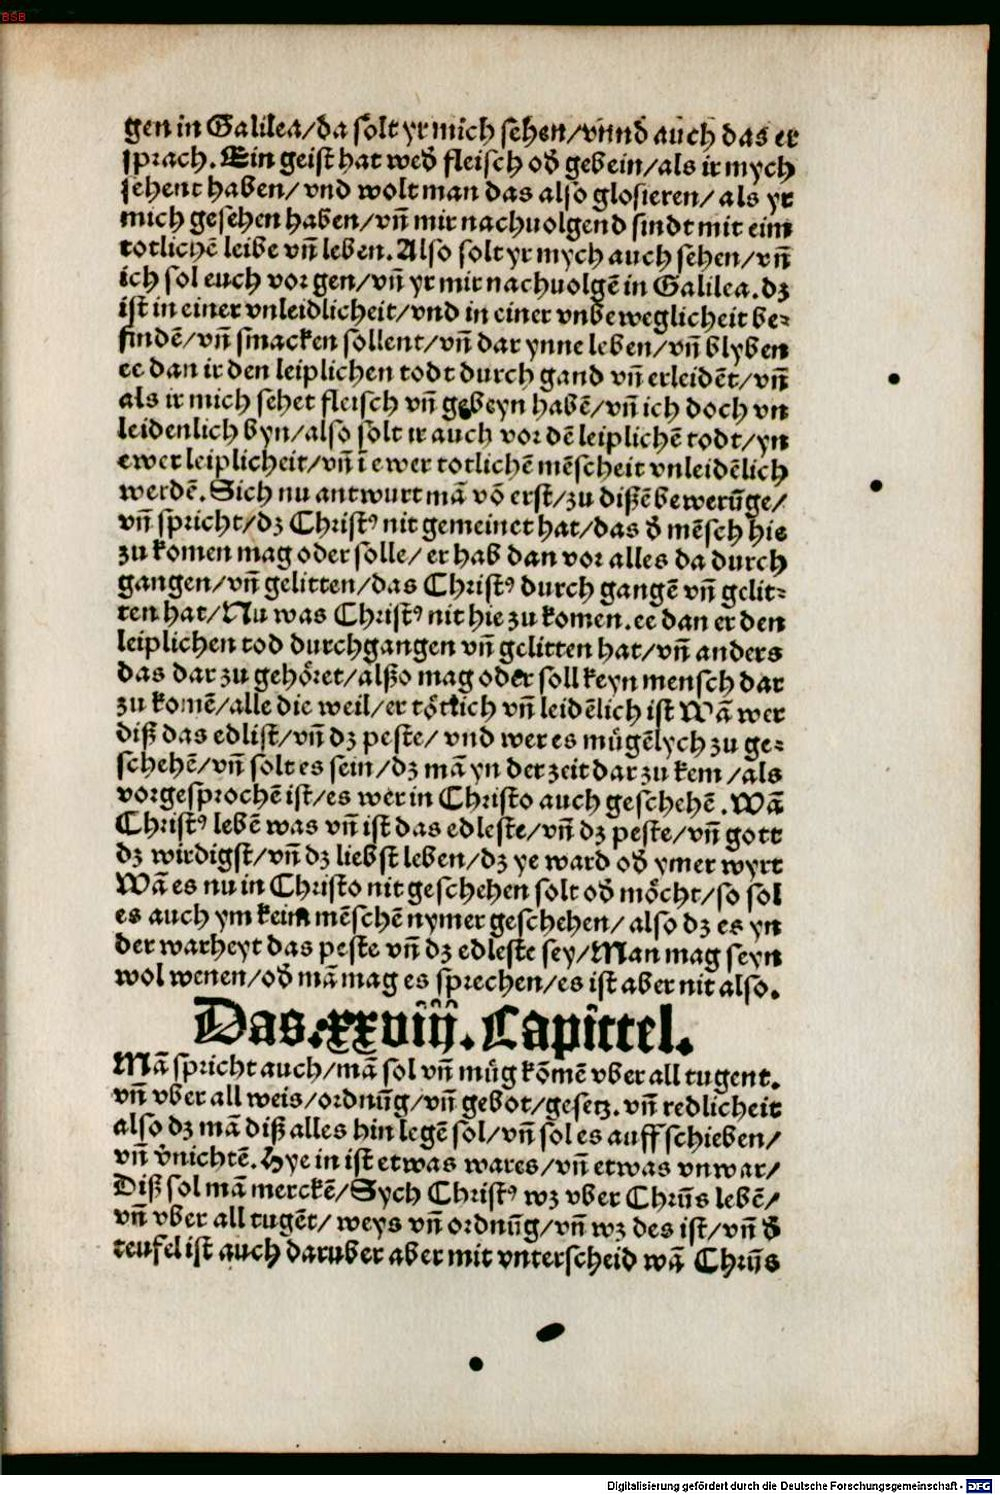 BSB
gen in Galilea/da solt yr mich sehen/vnnd auch das er
sprach. Ein geist hat wed̄ fleisch od̄ gebein/als ir mych
sehent haben/ vnd wolt man das also glosieren/ als yr
mich gesehen haben/vñ mir nachuolgend sindt mit eim
totlichē leibe vñ leben. Also solt yr mych auch sehen/vñ
ich sol euch vor gen/vñ yr mir nachuolgē in Galilea. dꝫ
ist in einer vnleidlicheit/vnd in einer vnbeweglicheit be⸗
findē/vñ smacken sollent/vñ dar ynne leben/vñ blyben
ee dan ir den leiplichen todt durch gand vñ erleidēt/vñ
als ir mich sehet fleisch vñ gebeyn habē/vñ ich doch vn
leidenlich byn/also solt ir auch vor dē leiplichē todt/yn
ewer leiplicheit/vñ ī ewer totlichē mēscheit vnleidēlich
werdē. Sich nu antwurt mā vō erst/zu dißē bewerūge/
vñ spricht/dꝫ Christꝰ nit gemeinet hat/das d̄ mēsch hie
zu komen mag oder solle/ er hab dan vor alles da durch
gangen/vñ gelitten/das Christꝰ durch gangē vñ gelit⸗
ten hat/Nu was Christꝰ nit hie zu komen. ee dan er den
leiplichen tod durchgangen vñ gelitten hat/vñ anders
das dar zu gehöret/alßo mag oder soll keyn mensch dar
zu komē/alle die weil/er tötlich vñ leidēlich ist Wā wer
diß das edlist/vñ dꝫ peste/ vnd wer es mügēlych zu ge⸗
schehē/vñ solt es sein/dꝫ mā yn der zeit dar zu kem /als
vorgesprochē ist/es wer in Christo auch geschehē. Wā
Christꝰ lebē was vñ ist das edleste/vñ dꝫ peste/vñ gott
dꝫ wirdigst/vñ dꝫ liebst leben/dꝫ ye ward od̄ ymer wyrt
Wā es nu in Christo nit geschehen solt od̄ möcht/so sol
es auch ym keim mēschē nymer geschehen/ also dꝫ es yn
der warheyt das peste vñ dꝫ edleste sey/Man mag seyn
wol wenen/od̄ mā mag es sprechen/es ist aber nit also.
Das. xxviij. Capittel.
Mā spricht auch/mā sol vñ müg kōmē vber all tugent.
vñ vber all weis/ordnūg/vñ gebot/gesetz. vñ redlicheit
also dꝫ mā diß alles hin legē sol/vñ sol es auff schieben/
vñ v̄nichtē. Hye in ist etwas wares/vñ etwas vnwar/
Diß sol mā merckē/Sych Christꝰ wꝫ vber Chrūs lebē/
vñ vber all tugēt/ weys vñ ordnūg/vñ wꝫ des ist/vñ d̄
teufel ist auch daruber aber mit vnterscheid wā Chrūs
Digitalisierung gefördert durch die Deutsche Forschungsgemeinschaft - DFG